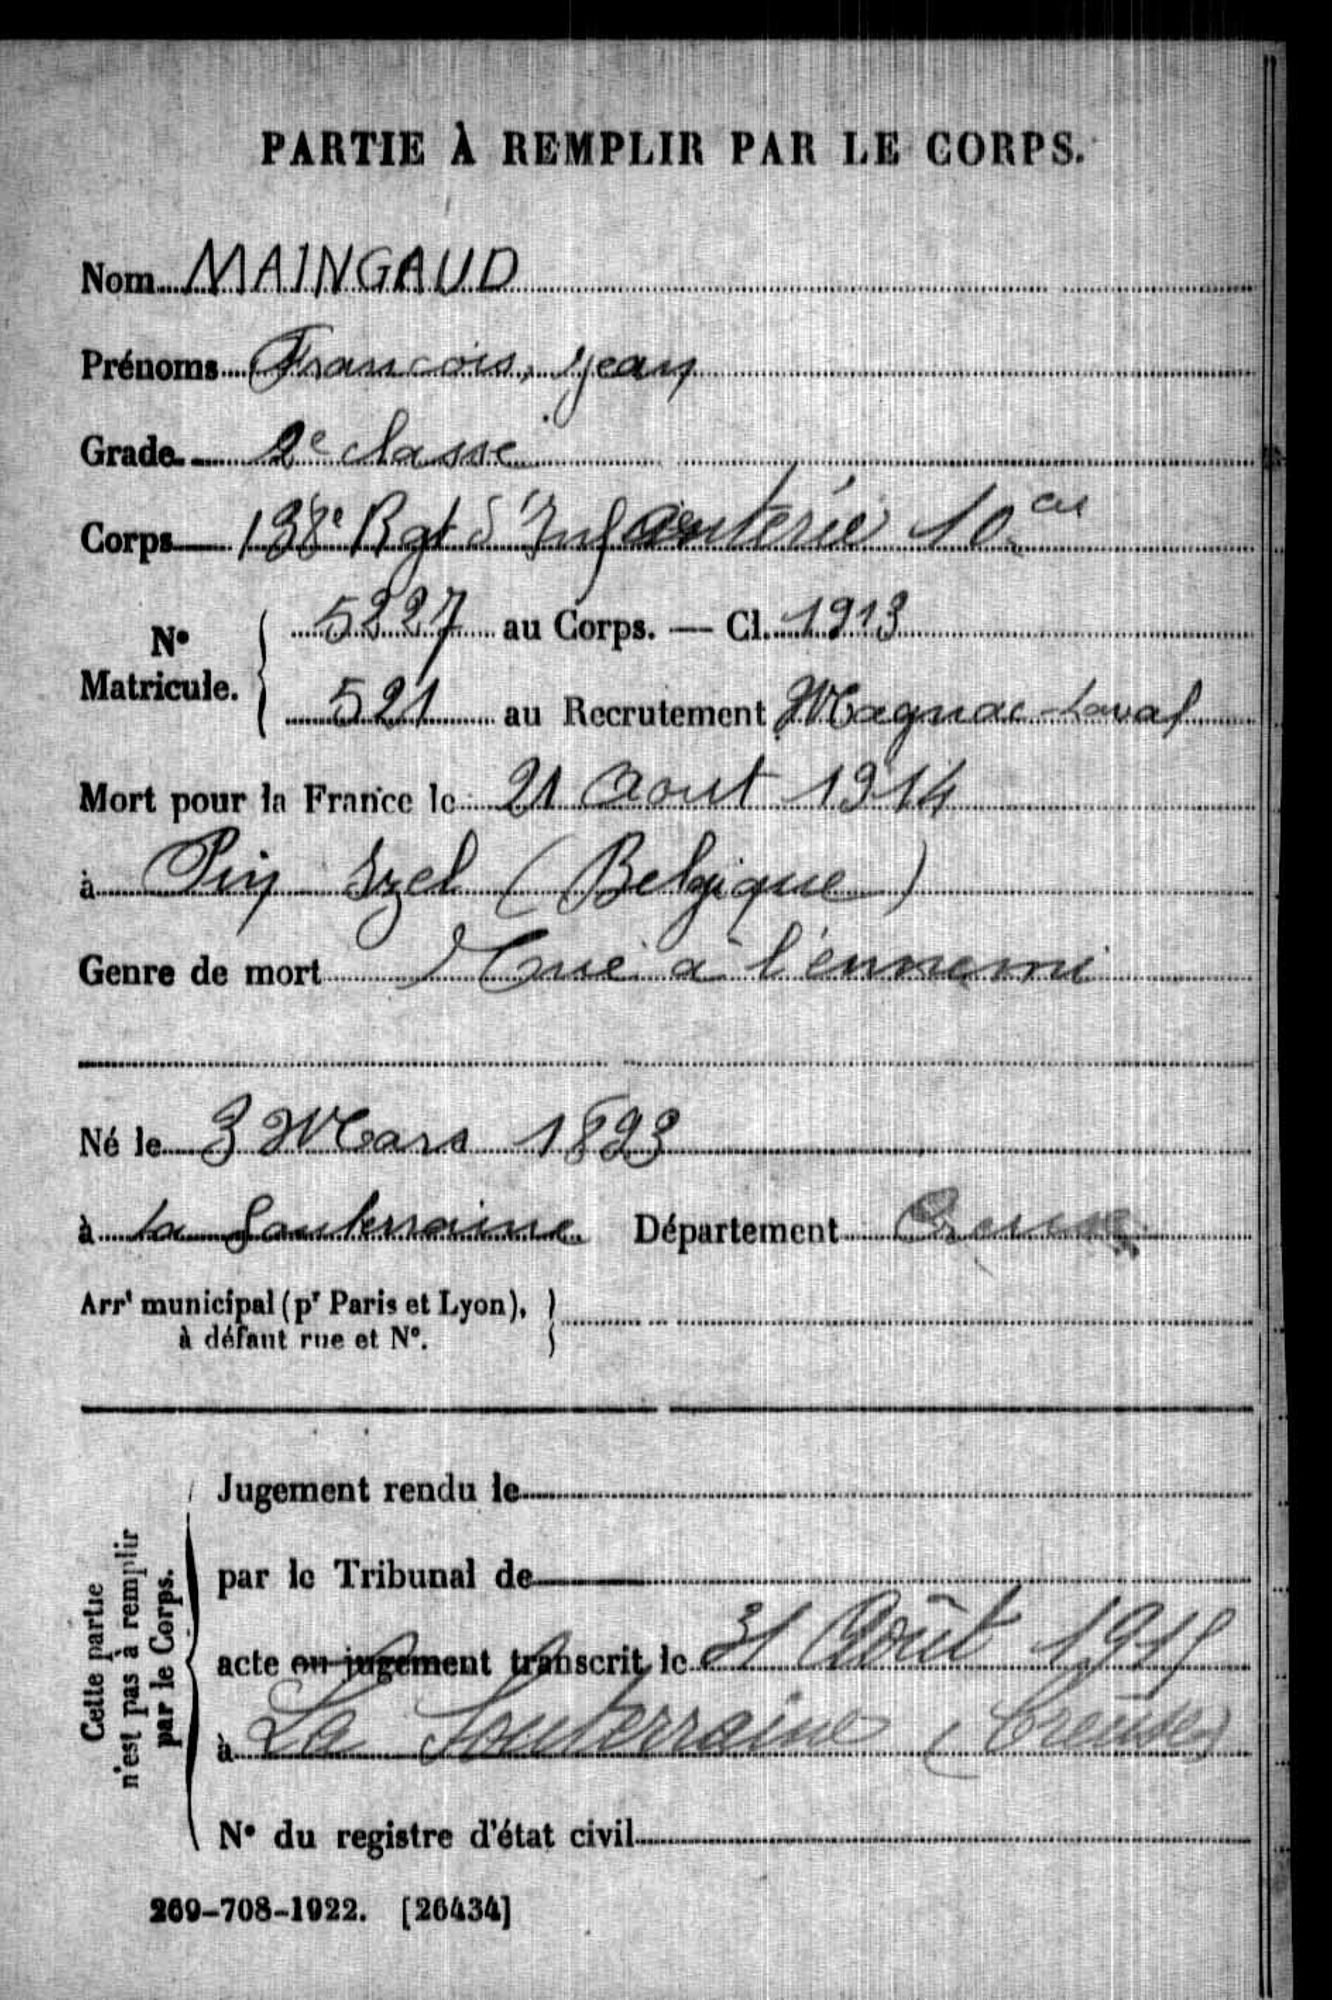 PARTIE À REMPLIR PAR LE CORPS.
Nom MAINGAUD
Prénoms Francois, Jean
Grade 2e classe
Corps 138e Rgt d'Infanterie 10e cie
N° Matricule. 5227 au Corps. — Cl. 1913
521 au Recrutement Magnac-Laval
Mort pour la France le 21 Aout 1914
à Pin Izel (Belgique)
Genre de mort Tué à l'ennemi
Né le 3 Mars 1893
à La Souterraine Département Creuse
Arrt municipal (pr Paris et Lyon),
à défaut rue et N°.
Cette partie n'est pas à remplir par le Corps.
Jugement rendu le
par le Tribunal de
acte ou jugement transcrit le 31 Août 1915
à La Souterraine (Creuse)
N° du registre d'état civil
269-708-1922. [26434]